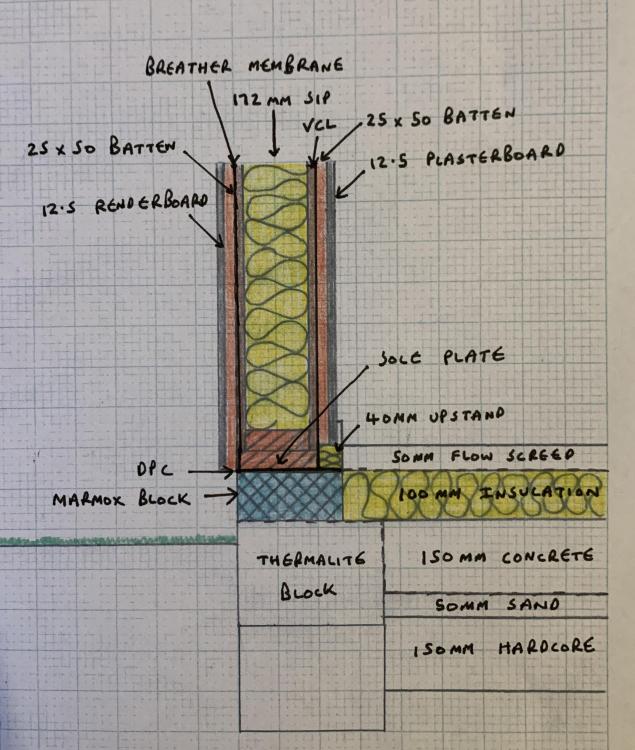 BREATHER MEMBRANE
172 MM SIP
VCL
25 x 50 BATTEN
25 x 50 BATTEN
12.5 PLASTERBOARD
12.5 RENDERBOARD
SOLE PLATE
40MM UPSTAND
50MM FLOW SCREED
DPC
MARMOX BLOCK
100 MM INSULATION
THERMALITE
BLOCK
150 MM CONCRETE
50MM SAND
150MM HARDCORE